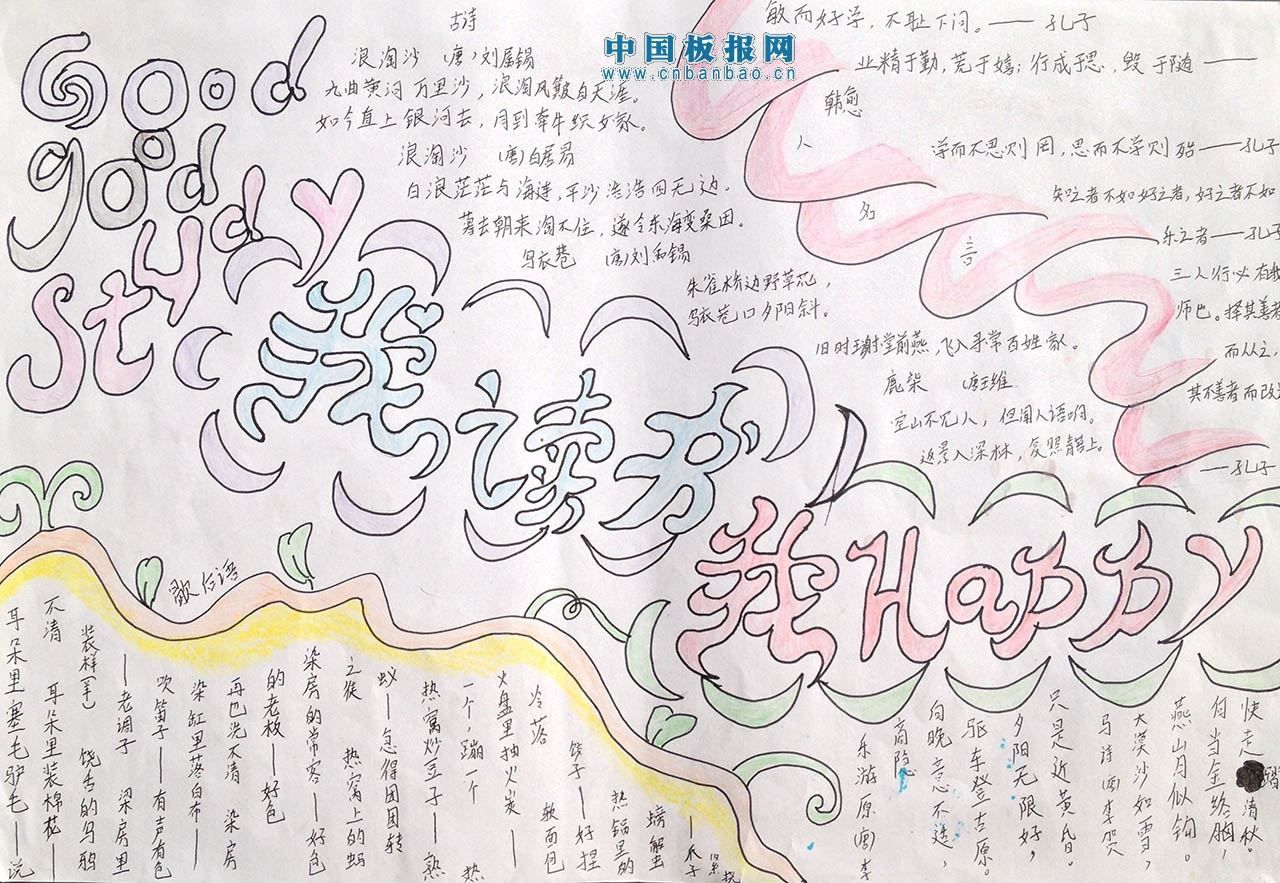 Good
good
study
古诗
浪淘沙 (唐)刘禹锡
九曲黄河万里沙，浪淘风簸自天涯。
如今直上银河去，同到牵牛织女家。
浪淘沙 (唐)白居易
白浪茫茫与海连，平沙浩浩四无边。
暮去朝来淘不住，遂令东海变桑田。
乌衣巷 (唐)刘禹锡
朱雀桥边野草花，
乌衣巷口夕阳斜。
旧时王谢堂前燕，飞入寻常百姓家。
鹿柴 (唐)王维
空山不见人，但闻人语响。
返景入深林，复照青苔上。
中国板报网
www.cnbanbao.cn
敏而好学，不耻下问。——孔子
业精于勤，荒于嬉；行成于思，毁于随——
韩愈
人
名
言
学而不思则罔，思而不学则殆——孔子
知之者不如好之者，好之者不如
乐之者——孔子
三人行必有我
师巴。择其善者
而从之，
其不善者而改
——孔子
我读书
我Happy
歇后语
快走踏清秋。
何当金络脑，
燕山月似钩。
大漠沙如雪，
马诗(唐)李贺
只是近黄昏。
夕阳无限好，
驱车登古原。
向晚意不适，
商隐
乐游原(唐)李
——爪子
螃蟹
热锅里的
饺子——好捏
软面包
冷落
火盆里抽火炭——
一个，蹦一个 热
热窝炒豆子——熟
蚁——急得团团转
之侯 热窝上的蚂
染房的常客——好色
的老板——好色
再巴洗不清 染房
染缸里落白布——
吹笛子——有声有色
——老调子 染房里
装样(羊) 饶舌的乌鸦
不清 耳朵里装棉花——
耳朵里塞毛驴毛——